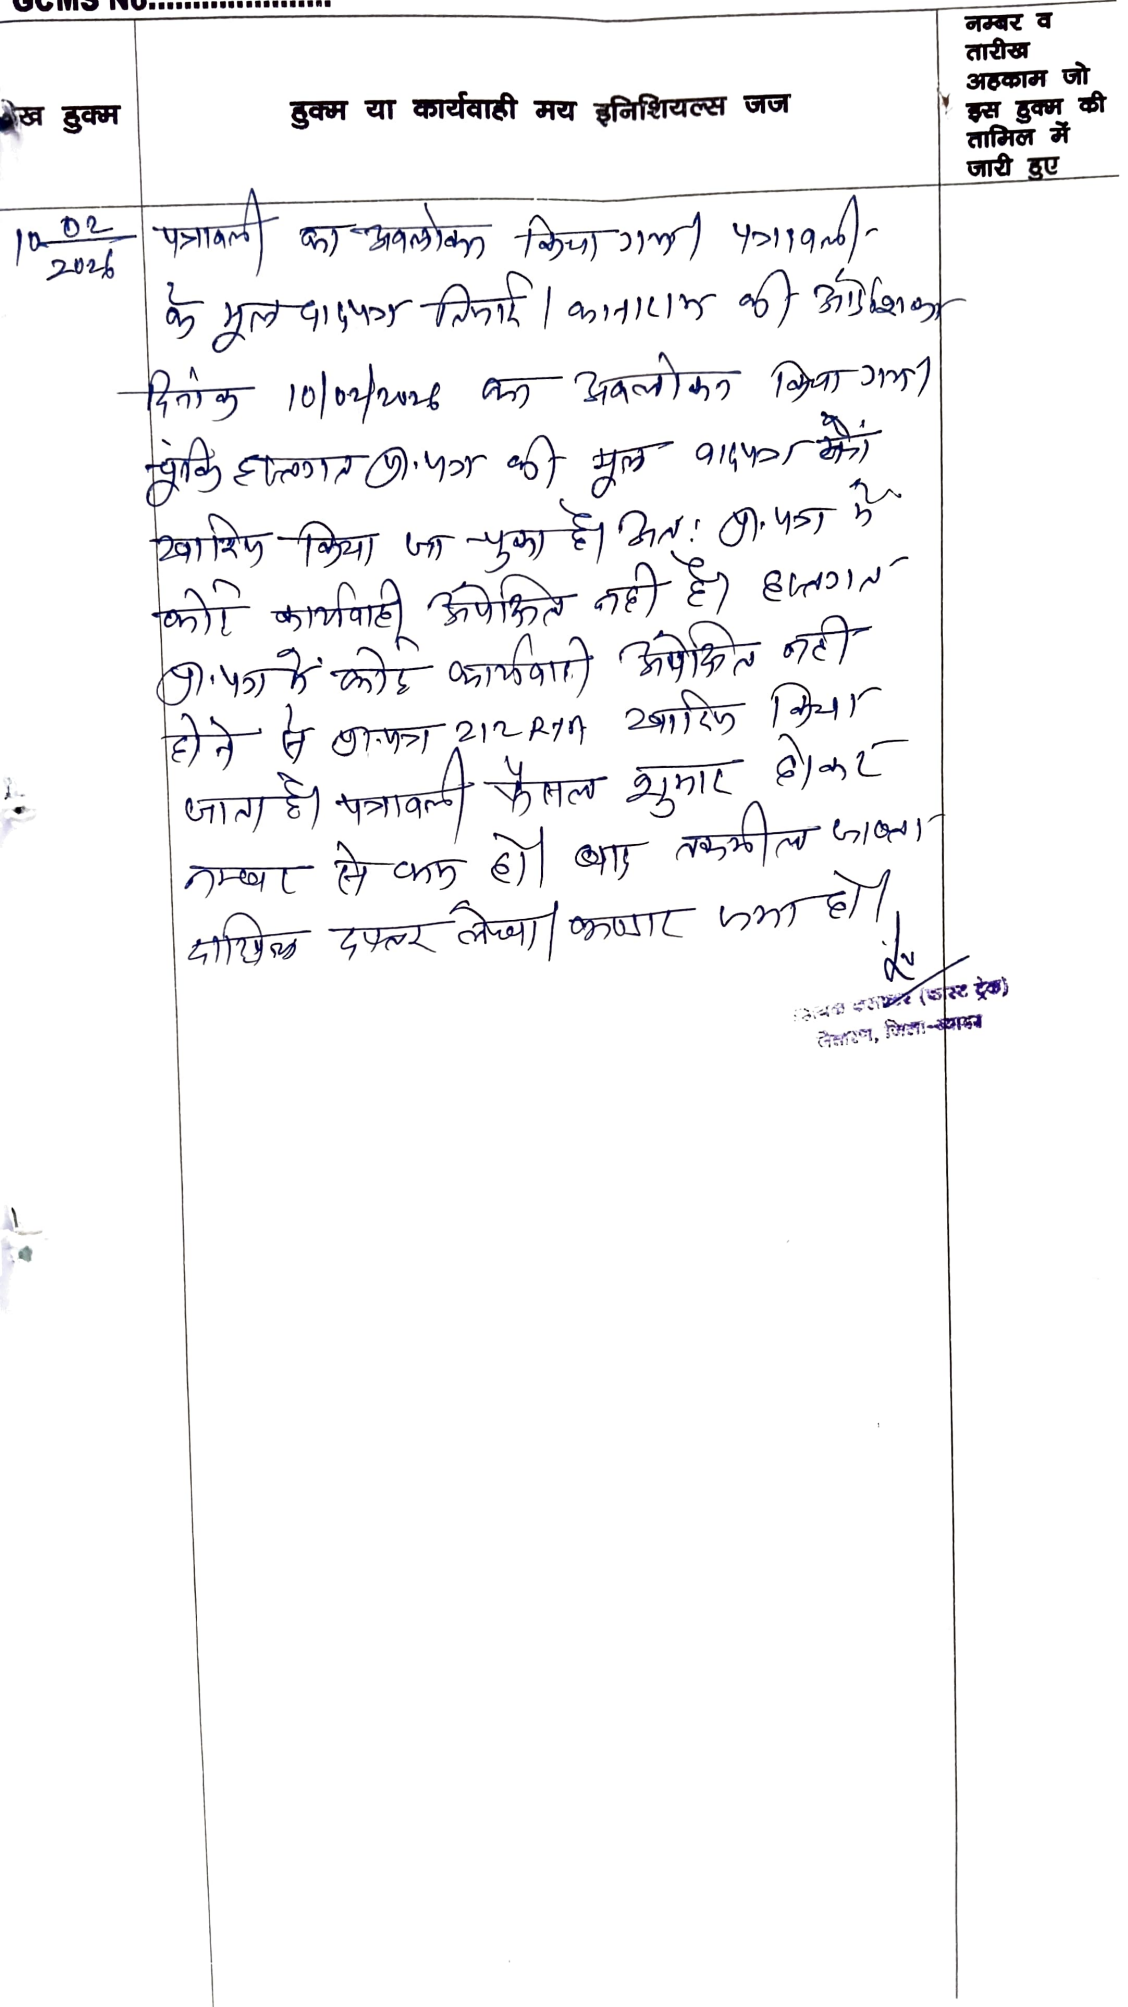 GCMS No.........................
ख हुक्म
हुक्म या कार्यवाही मय इनिशियल्स जज
नम्बर व
तारीख
अहकाम जो
इस हुक्म की
तामिल में
जारी हुए
10 02
2026
पत्रावली का अवलोकन किया गया। पत्रावली
के मूल वादपत्र की आदेशिका
दिनांक 10/02/2026 का अवलोकन किया गया।
चूंकि हस्तगत प्रा.पत्र की मूल वादपत्र
खारिज किया जा चुका है। अतः प्रा.पत्र में
कोई कार्यवाही अपेक्षित नही है। हस्तगत
प्रा.पत्र में कोई कार्यवाही अपेक्षित नही
होने से प्रा.पत्र 212 RTA खारिज किया
जाता है। पत्रावली फैसल शुमार होकर
नम्बर से कम हो। बाद तकमील जाब्ता
दाखिल दफ्तर जमा हो।
(फास्ट ट्रेक)
जिला-ब्यावर